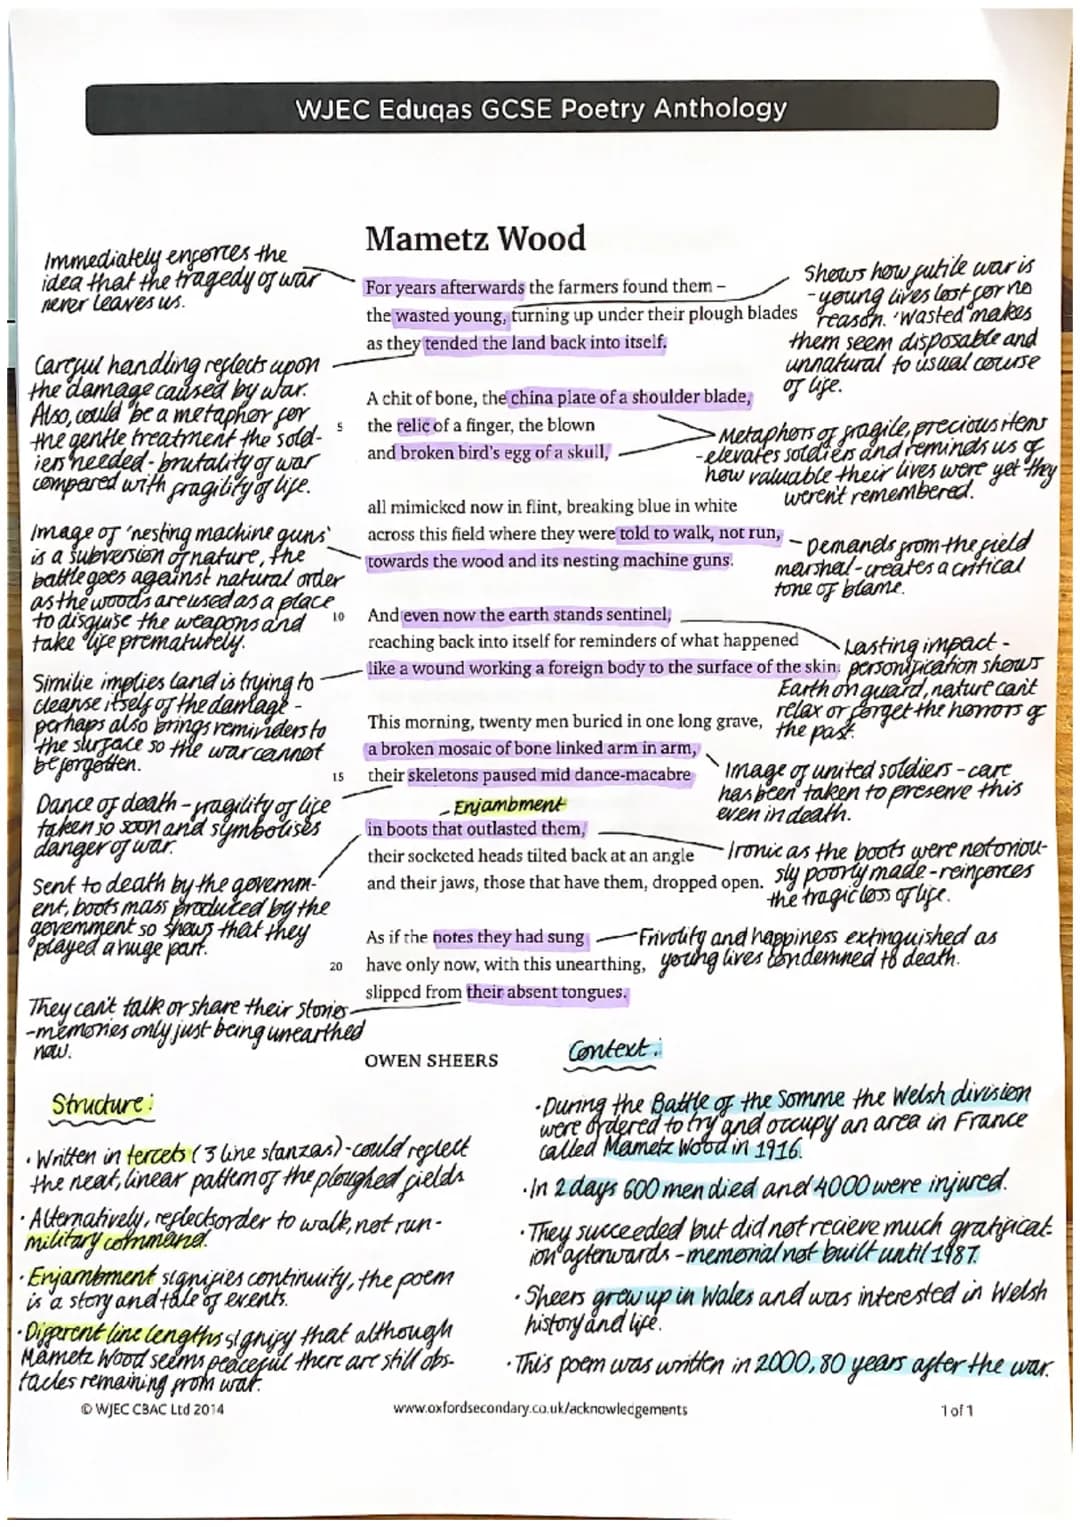 WJEC Eduqas GCSE Poetry Anthology
Mametz Wood
Immediately enforces the
idea that the tragedy of war
never leaves us.
For years afterwards the farmers found them –
the wasted young, turning up under their plough blades
as they tended the land back into itself.
Shows how futile war is
- young lives lost for no
reason. 'Wasted makes
them seem disposable and
unnatural to usual course
of life.
Careful handling reflects upon
the damage caused by war.
Also, could be a metaphor for
the gentle treatment the sold-
iers needed - brutality of war
compared with fragility of life.
A chit of bone, the china plate of a shoulder blade,
5 the relic of a finger, the blown
and broken bird's egg of a skull,
Metaphors of fragile, precious items
- elevates soldiers and reminds us of
how valuable their lives were yet they
weren't remembered.
all mimicked now in flint, breaking blue in white
across this field where they were told to walk, not run,
towards the wood and its nesting machine guns.
Image of 'nesting machine guns'
is a subversion of nature, the
battle goes against natural order
as the woods are used as a place
to disguise the weapons and
take life prematurely.
- Demands from the field
marshal - creates a critical
tone of blame.
10 And even now the earth stands sentinel,
reaching back into itself for reminders of what happened
like a wound working a foreign body to the surface of the skin.
Lasting impact -
personification shows
Earth on guard, nature can't
relax or forget the horrors of
the past.
Similie implies land is trying to
cleanse itself of the damage -
perhaps also brings reminders to
the surface so the war cannot
be forgotten.
This morning, twenty men buried in one long grave,
a broken mosaic of bone linked arm in arm,
15 their skeletons paused mid dance-macabre
Image of united soldiers - care
has been taken to preserve this
even in death.
Dance of death - fragility of life
taken so soon and symbolises
danger of war.
- Enjambment
in boots that outlasted them,
their socketed heads tilted back at an angle
and their jaws, those that have them, dropped open.
Ironic as the boots were notoriou-
sly poorly made - reinforces
the tragic loss of life.
Sent to death by the governm-
ent, boots mass produced by the
government so shows that they
played a huge part.
As if the notes they had sung
20 have only now, with this unearthing,
slipped from their absent tongues.
Frivolity and happiness extinguished as
young lives condemned to death.
They can't talk or share their stories
- memories only just being unearthed
now.
OWEN SHEERS
Structure:
• Written in tercets (3 line stanzas) - could reflect
the neat, linear pattern of the ploughed fields
• Alternatively, reflects order to walk, not run -
military command.
• Enjambment signifies continuity, the poem
is a story and tale of events.
• Different line lengths signify that although
Mametz Wood seems peaceful there are still obs-
tacles remaining from war.
Context:
• During the Battle of the Somme the Welsh division
were ordered to try and occupy an area in France
called Mametz Wood in 1916.
• In 2 days 600 men died and 4000 were injured.
• They succeeded but did not recieve much gratificat-
ion afterwards - memorial not built until 1987.
• Sheers grew up in Wales and was interested in Welsh
history and life.
• This poem was written in 2000, 80 years after the war.
© WJEC CBAC Ltd 2014
www.oxfordsecondary.co.uk/acknowledgements
1 of 1